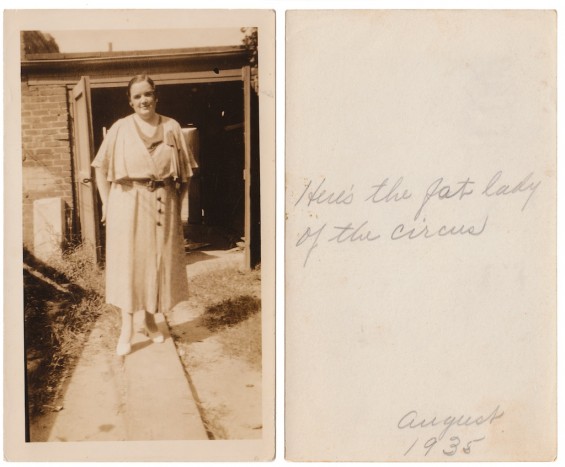 Here's the fat lady
of the circus
August
1935